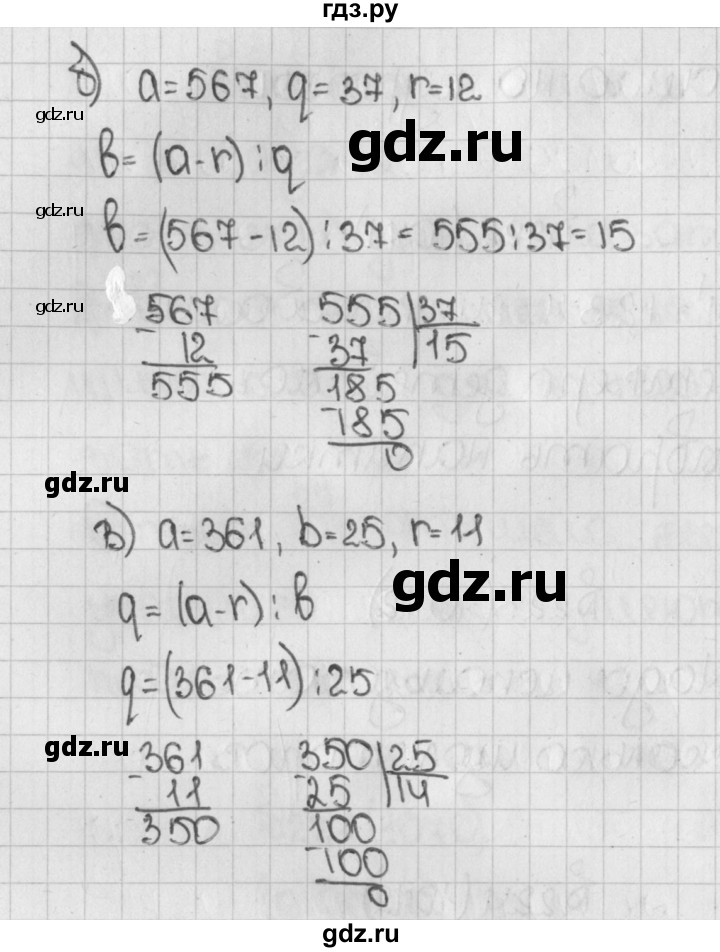 гдз.ру
б) a=567, q=37, r=12
gdz.ru
b=(a-r):q
gdz.ru
gdz.ru
b=(567-12):37=555:37=15
gdz.ru
567 555 37
- 12 - 37 15
555 185
- 185
0
gdz.ru
в) a=361, b=25, r=11
gdz.ru
q=(a-r):b
q=(361-11):25
gdz.ru
361 350 25
- 11 - 25 14
350 100
- 100
0
gdz.ru